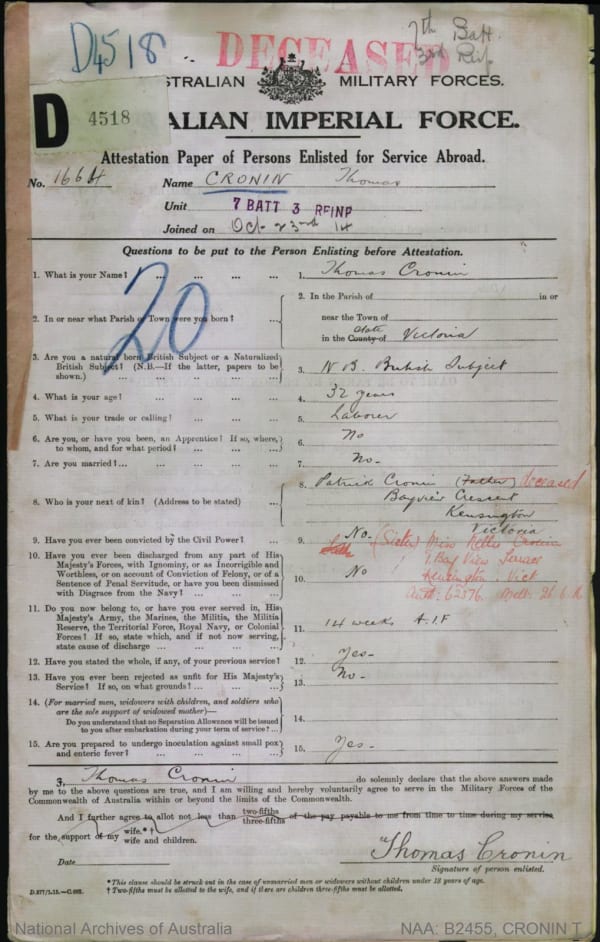 D4518
DECEASED
7th Batt
3rd Rinf
STRALIAN MILITARY FORCES.
D 4518
ALIAN IMPERIAL FORCE.
Attestation Paper of Persons Enlisted for Service Abroad.
No. 1664 Name CRONIN Thomas
Unit 7 BATT 3 REINF
Joined on Oct 23rd 14
Questions to be put to the Person Enlisting before Attestation.
20
1. What is your Name? ... ... ... ... 1. Thomas Cronin
2. In or near what Parish or Town were you born? ... 2. In the Parish of in or
near the Town of
in the County of State Victoria
3. Are you a natural born British Subject or a Naturalized
British Subject? (N.B.—If the latter, papers to be
shown.) ... ... ... ... ... 3. N B. British Subject
4. What is your age? ... ... ... ... 4. 32 years
5. What is your trade or calling? ... ... ... 5. Laborer
6. Are you, or have you been, an Apprentice? If so, where,
to whom, and for what period? ... ... ... 6. No
7. Are you married? ... ... ... ... ... 7. No-
8. Who is your next of kin? (Address to be stated) ... 8. Patrick Cronin (Father) deceased
Bayview Crescent
Kensington
Victoria
9. Have you ever been convicted by the Civil Power? ... 9. No.
(Sister) Miss Nellie Cronin
1 Bay View Terrace
Kensington Vict
10. Have you ever been discharged from any part of His
Majesty's Forces, with Ignominy, or as Incorrigible and
Worthless, or on account of Conviction of Felony, or of a
Sentence of Penal Servitude, or have you been dismissed
with Disgrace from the Navy? ... ... ... 10. No
Auth: 62376 Melb:
11. Do you now belong to, or have you ever served in, His
Majesty's Army, the Marines, the Militia, the Militia
Reserve, the Territorial Force, Royal Navy, or Colonial
Forces? If so, state which, and if not now serving,
state cause of discharge ... ... ... ... 11. 14 weeks A.I.F
12. Have you stated the whole, if any, of your previous service? 12. Yes-
13. Have you ever been rejected as unfit for His Majesty's
Service? If so, on what grounds? ... ... ... 13. No-
14. (For married men, widowers with children, and soldiers who
are the sole support of widowed mother)—
Do you understand that no Separation Allowance will be issued
to you after embarkation during your term of service? ... 14.
15. Are you prepared to undergo inoculation against small pox
and enteric fever? ... ... ... ... 15. Yes-
I, Thomas Cronin do solemnly declare that the above answers made
by me to the above questions are true, and I am willing and hereby voluntarily agree to serve in the Military Forces of the
Commonwealth of Australia within or beyond the limits of the Commonwealth.
And I further agree to allot not less than two-fifths three-fifths of the pay payable to me from time to time during my service
for the support of my wife.*† wife and children.
Thomas Cronin
Date Signature of person enlisted.
* This clause should be struck out in the case of unmarried men or widowers without children under 18 years of age.
D.277/1.15.—C.603. † Two-fifths must be allotted to the wife, and if there are children three-fifths must be allotted.
National Archives of Australia NAA: B2455, CRONIN T